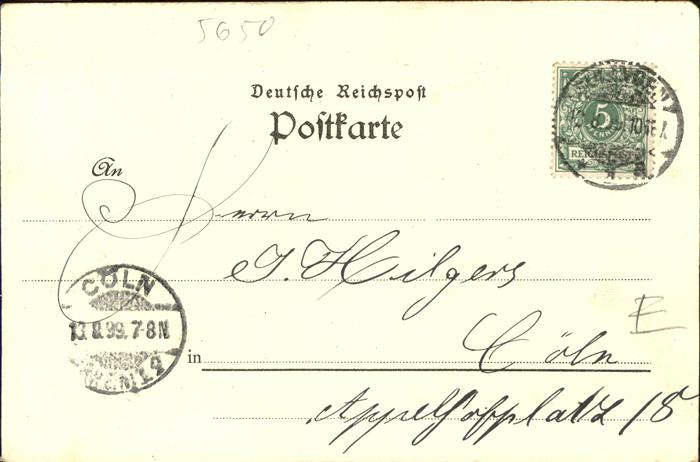 5650
Deutsche Reichspost
Postkarte
5
REICHSPOST
An
Herrn
J. Hilgers
CÖLN
13.8.99. 7-8N
in Cöln
Appellhofplatz 18
E